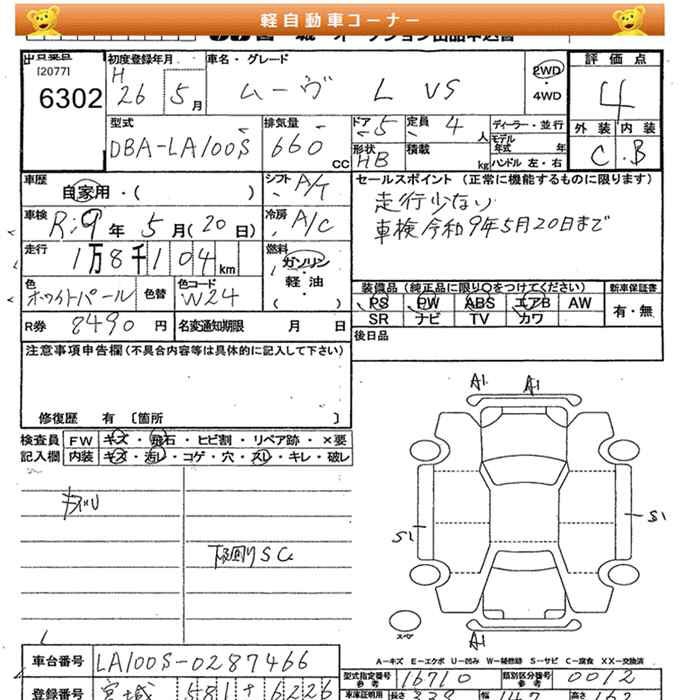 軽自動車コーナー
出品番号
[2077]
6302
初度登録年月
H 26 5月
車名・グレード
ムーヴ L VS
2WD
・4WD
評価点
4
外装 内装
C B
型式
DBA-LA100S
排気量
660 CC
ドア 5
定員 4 人
形状 HB
積載 kg
ディーラー・並行
モデル年式 年
ハンドル 左・右
車歴
自家用・( )
シフト A/T
車検 R:9年 5月(20日)
冷房 A/C
走行
1万8千104km
燃料
ガソリン
・
軽油
( )
色
ホワイトパール
色替
色コード
W24
R券 8490円
名変通知期限 月 日
セールスポイント (正常に機能するものに限ります)
走行少ない
車検令和9年5月20日まで
装備品(純正品に限り○をつけてください)
新車保証書
PS PW ABS エアB AW
SR ナビ TV カワ
有・無
後日品
注意事項申告欄(不具合内容等は具体的に記入して下さい)
修復歴 有 〔箇所 〕
検査員
記入欄
FW キズ・飛石・ヒビ割・リペア跡・×要
内装 キズ・汚レ・コゲ・穴・スレ・キレ・破レ
下回りSC
A1 A1
S1
S1
スペア
A1
A=キズ E=エクボ U=凹み W=補修跡 S=サビ C=腐食 XX=交換済
車台番号 LA100S-0287466
型式指定番号 16710
類別区分番号 0012
登録番号 宮城 581 す 6226
車庫証明用
参考
長さ 339
幅 147
高さ